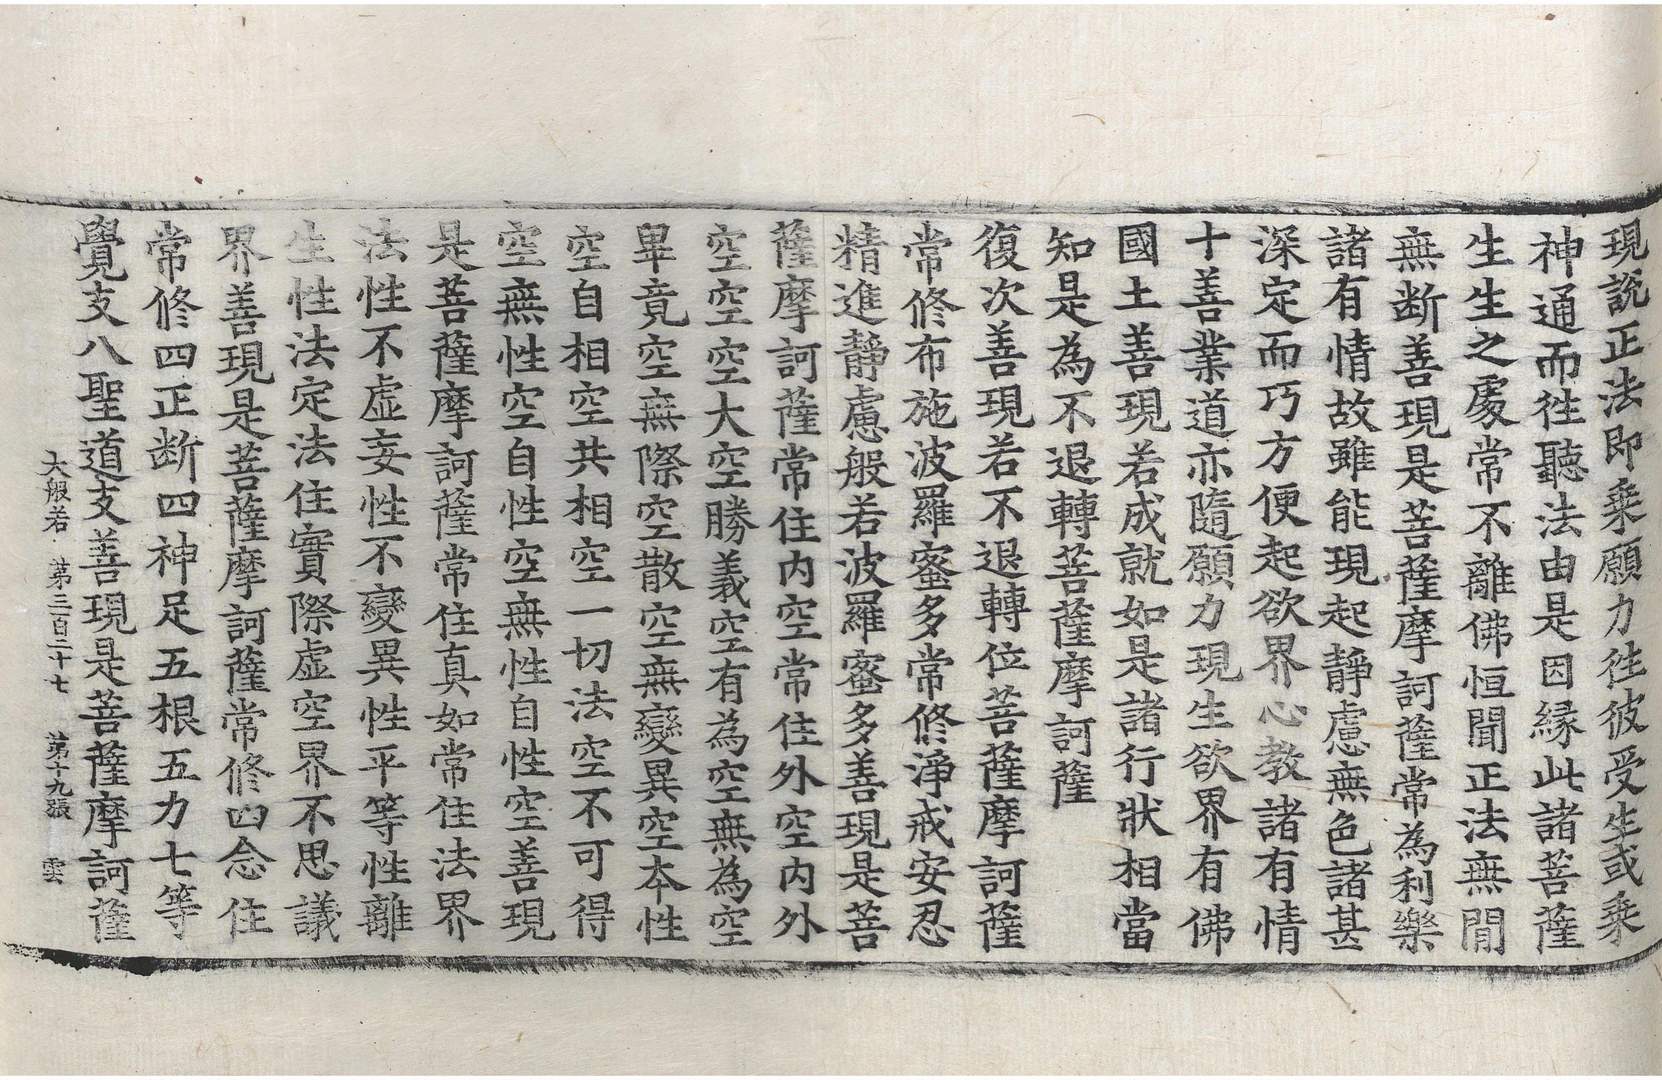 現說正法即乗願力徃彼受生或乗
神通而徃聽法由是因縁此諸菩薩
生生之處常不離佛恒聞正法無間
無断善現是菩薩摩訶薩常為利樂
諸有情故雖能現起靜慮無色諸甚
深定而巧方便起欲界心教諸有情
十善業道亦隨願力現生欲界有佛
國土善現若成就如是諸行狀相當
知是為不退轉菩薩摩訶薩
復次善現若不退轉位菩薩摩訶薩
常修布施波羅蜜多常修淨戒安忍
精進靜慮般若波羅蜜多善現是菩
薩摩訶薩常住内空常住外空内外
空空空大空勝義空有為空無為空
畢竟空無際空散空無變異空本性
空自相空共相空一切法空不可得
空無性空自性空無性自性空善現
是菩薩摩訶薩常住真如常住法界
法性不虛妄性不變異性平等性離
生性法定法住實際虛空界不思議
界善現是菩薩摩訶薩常修四念住
常修四正断四神足五根五力七等
覺支八聖道支善現是菩薩摩訶薩
大般若 第三百二十七 第十九張 雲